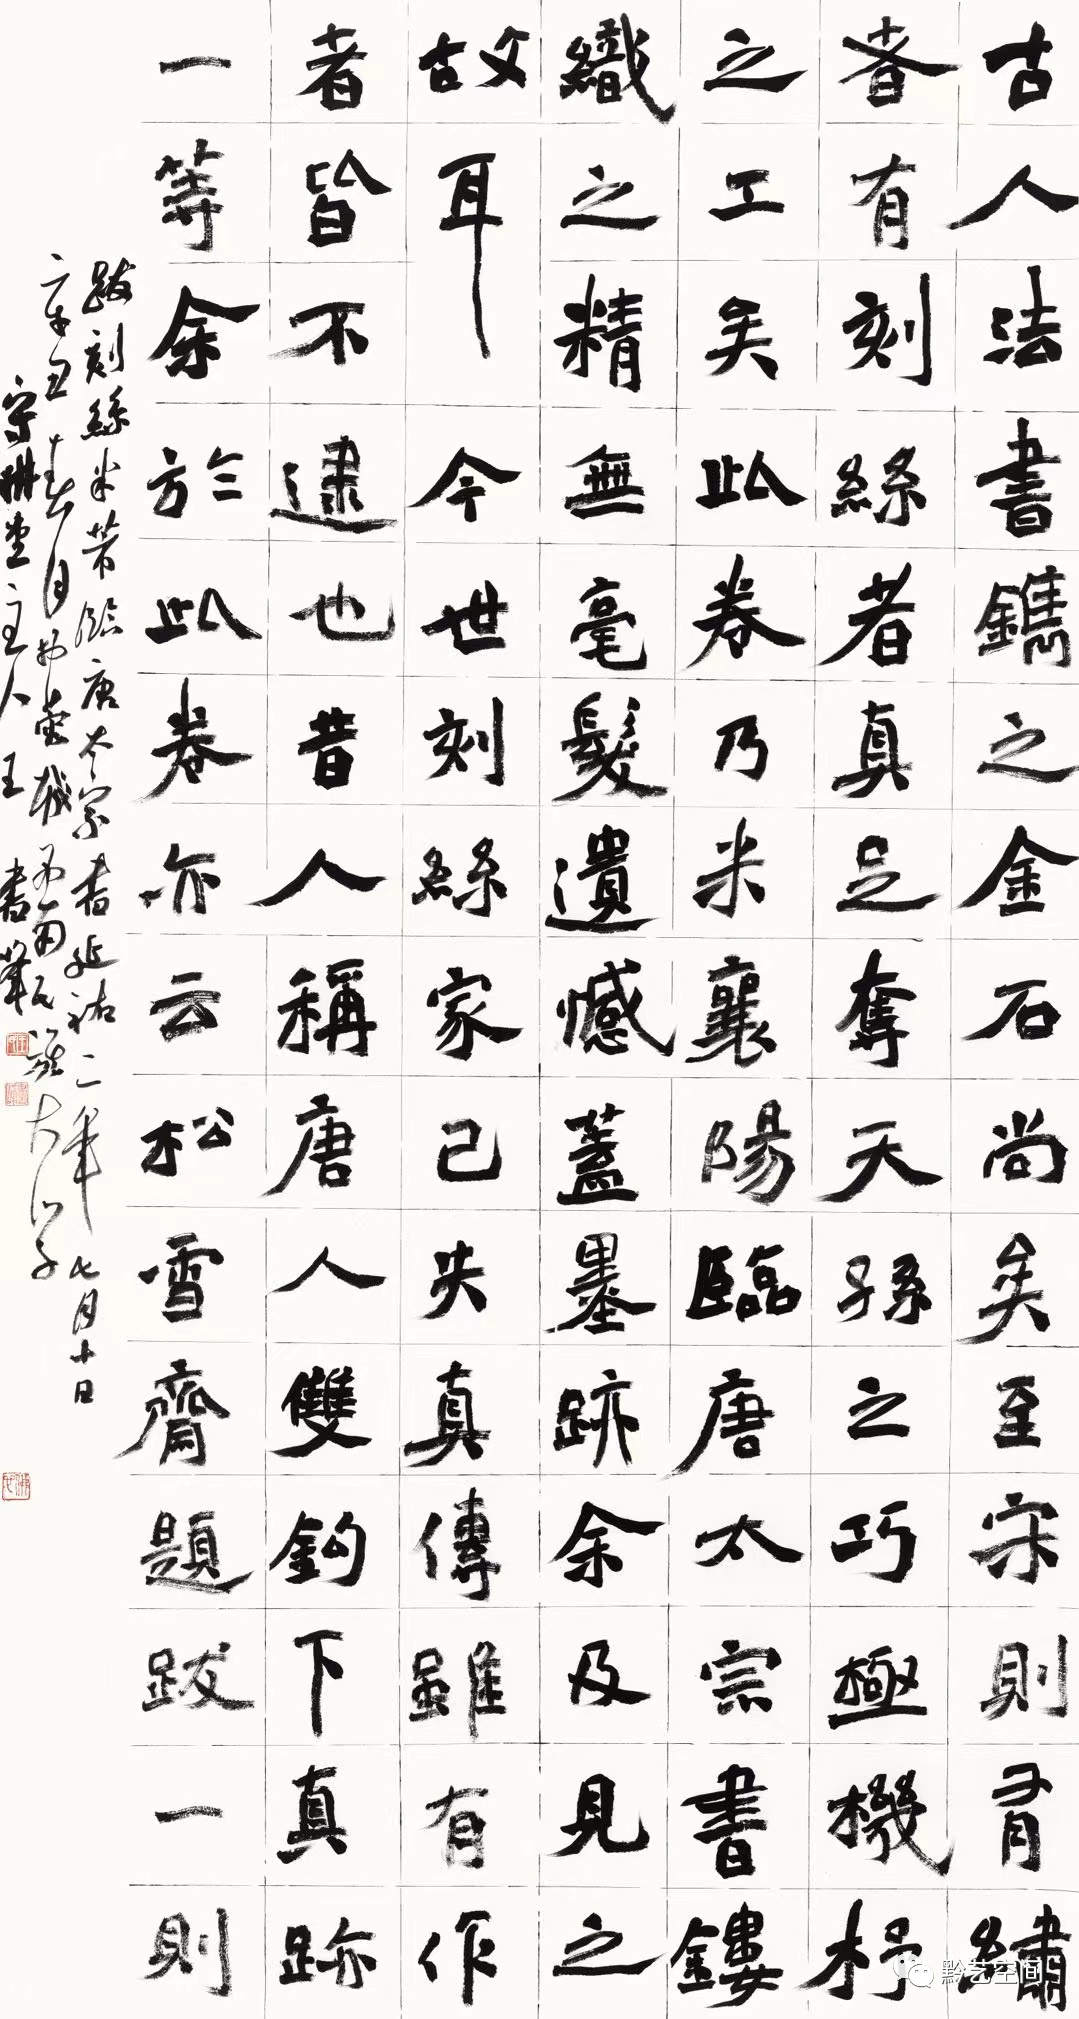 古人法書鐫之金石尚矣至宋則有繡
者有刻絲者真足奪天孫之巧極機杼
之工矣此卷乃米襄陽臨唐太宗書鏤
織之精無毫髮遺憾蓋墨跡余及見之
故耳今世刻絲家已失真傳雖有作
者皆不逮也昔人稱唐人雙鈎下真跡
一等余於此卷亦云松雪齋題跋一則
跋刻絲米芾臨唐太宗書延祐二年七月十日
辛丑春月於
守拙堂主人王書
黔艺空间